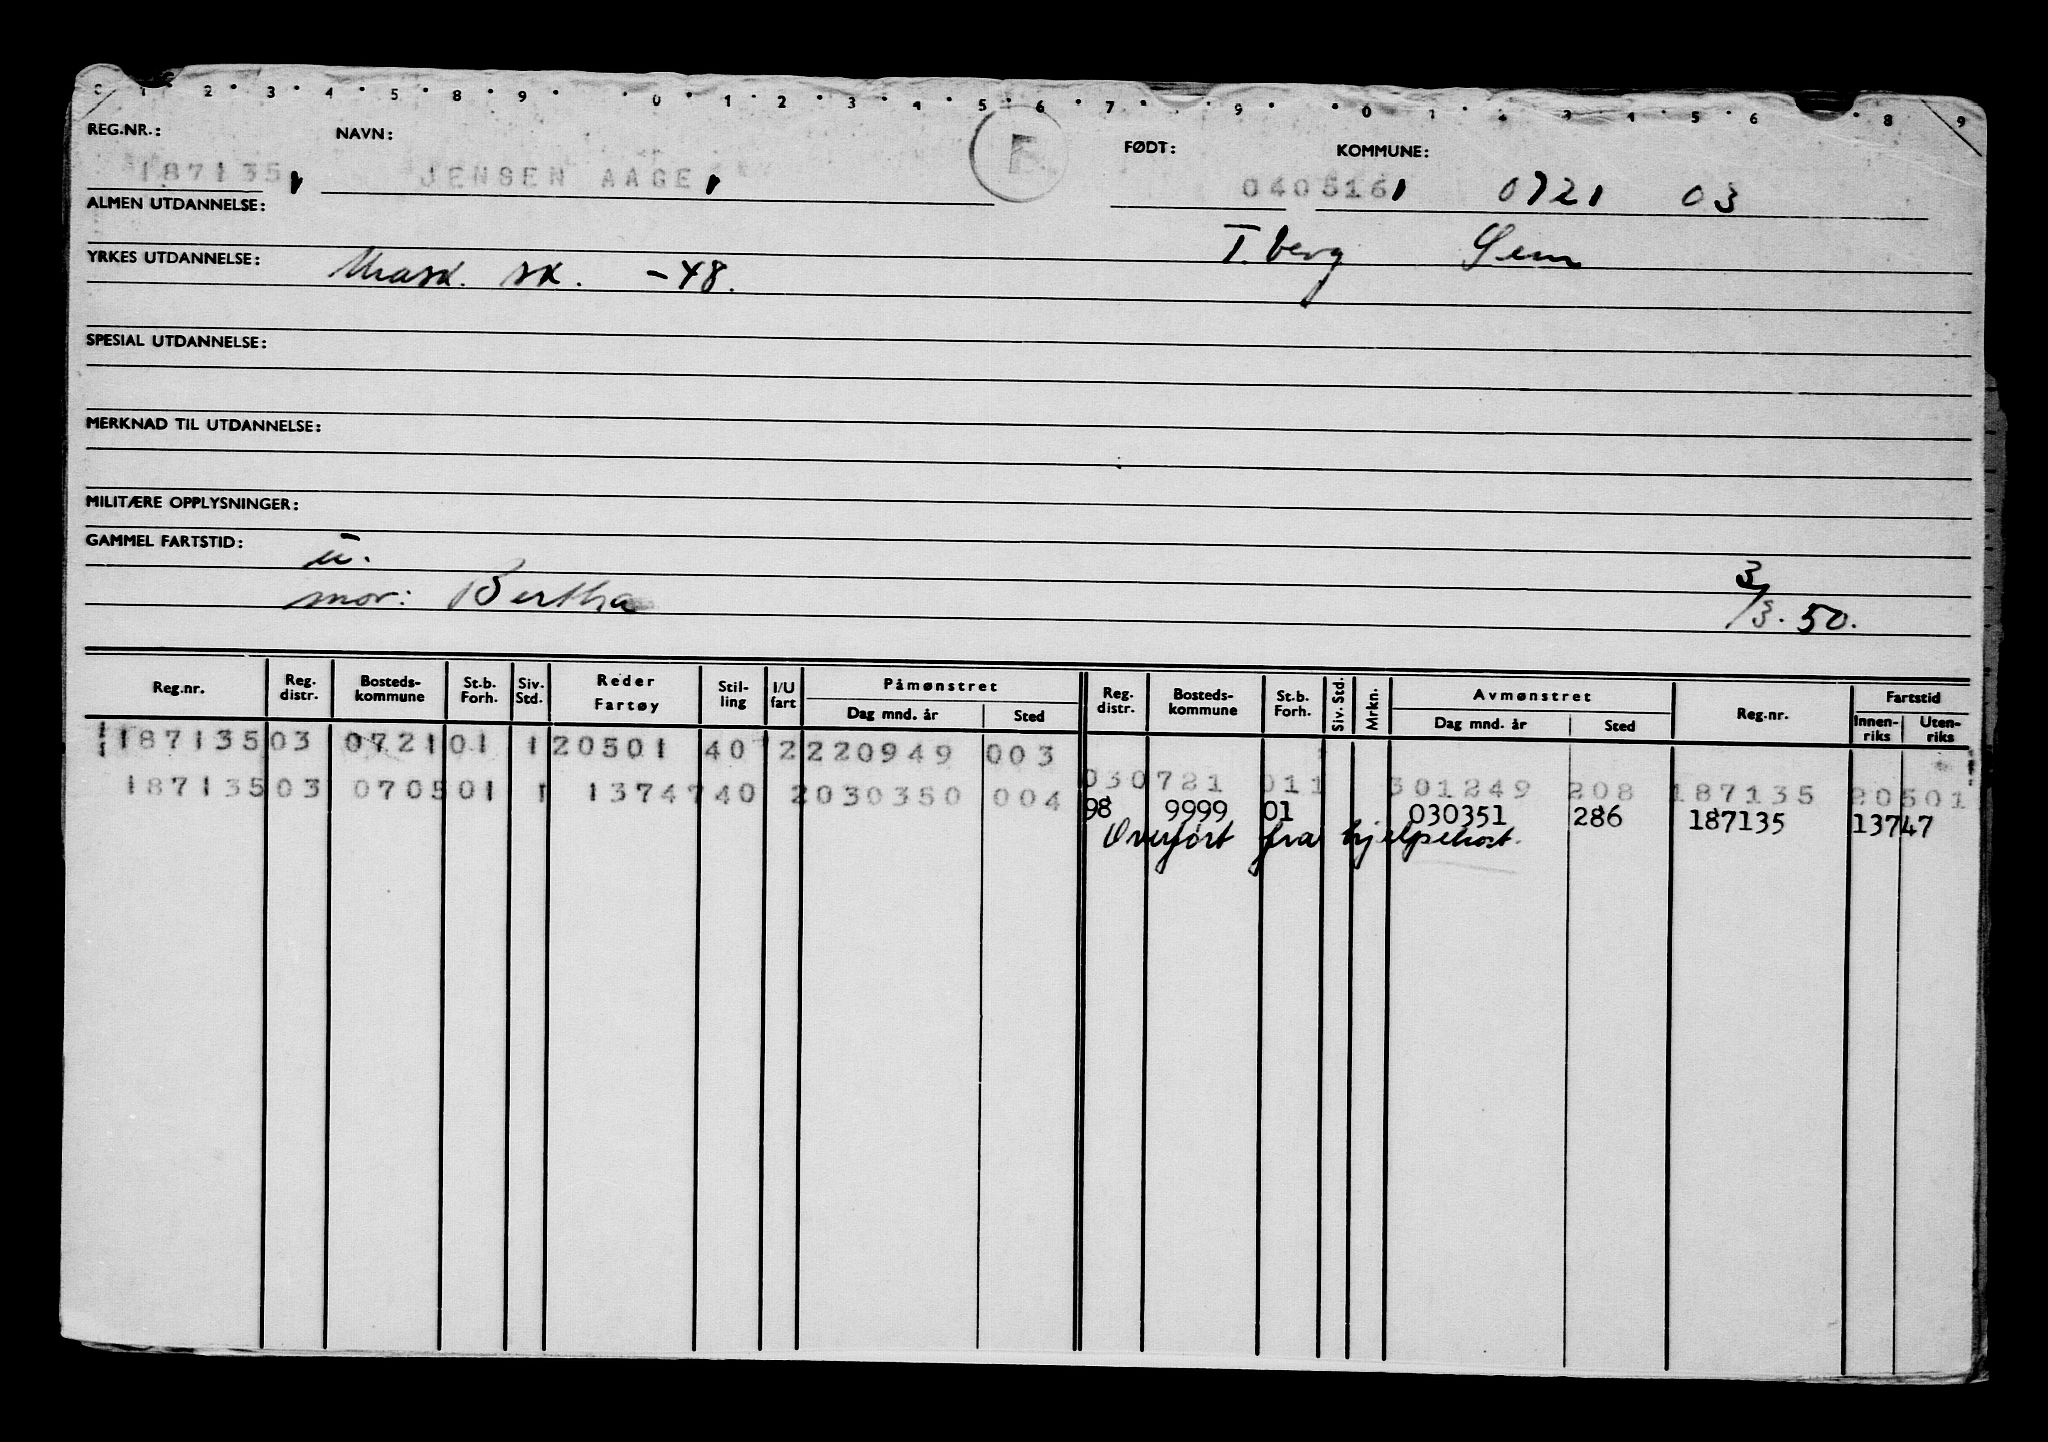 0 1 2 3 4 5 8 9 0 1 2 3 4 5 6 7 9 0 1 2 3 4 5 6 8 9
REG.NR.: NAVN: F FØDT: KOMMUNE:
187135 JENSEN AAGE 040516 0721 03
ALMEN UTDANNELSE:
T.berg Sem
YRKES UTDANNELSE: Mask. sk. -48.
SPESIAL UTDANNELSE:
MERKNAD TIL UTDANNELSE:
MILITÆRE OPPLYSNINGER:
GAMMEL FARTSTID: u.
mor: Bertha 3/3.50.
Reg.nr. Reg. distr. Bosteds-kommune St.b. Forh. Siv. Std. Reder Fartøy Stil-ling I/U fart Påmønstret Dag mnd. år Sted Reg. distr. Bosteds-kommune St.b. Forh. Siv. Std. Mrkn. Avmønstret Dag mnd. år Sted Reg.nr. Fartstid Innen-riks Uten-riks
187135 03 0721 01 1 20501 40 2 220949 003
030721 011 301249 208 187135 20501
187135 03 0705 01 1 13747 40 2 030350 004
98 9999 01 030351 286 187135 13747
Overført fra hjelpekort.